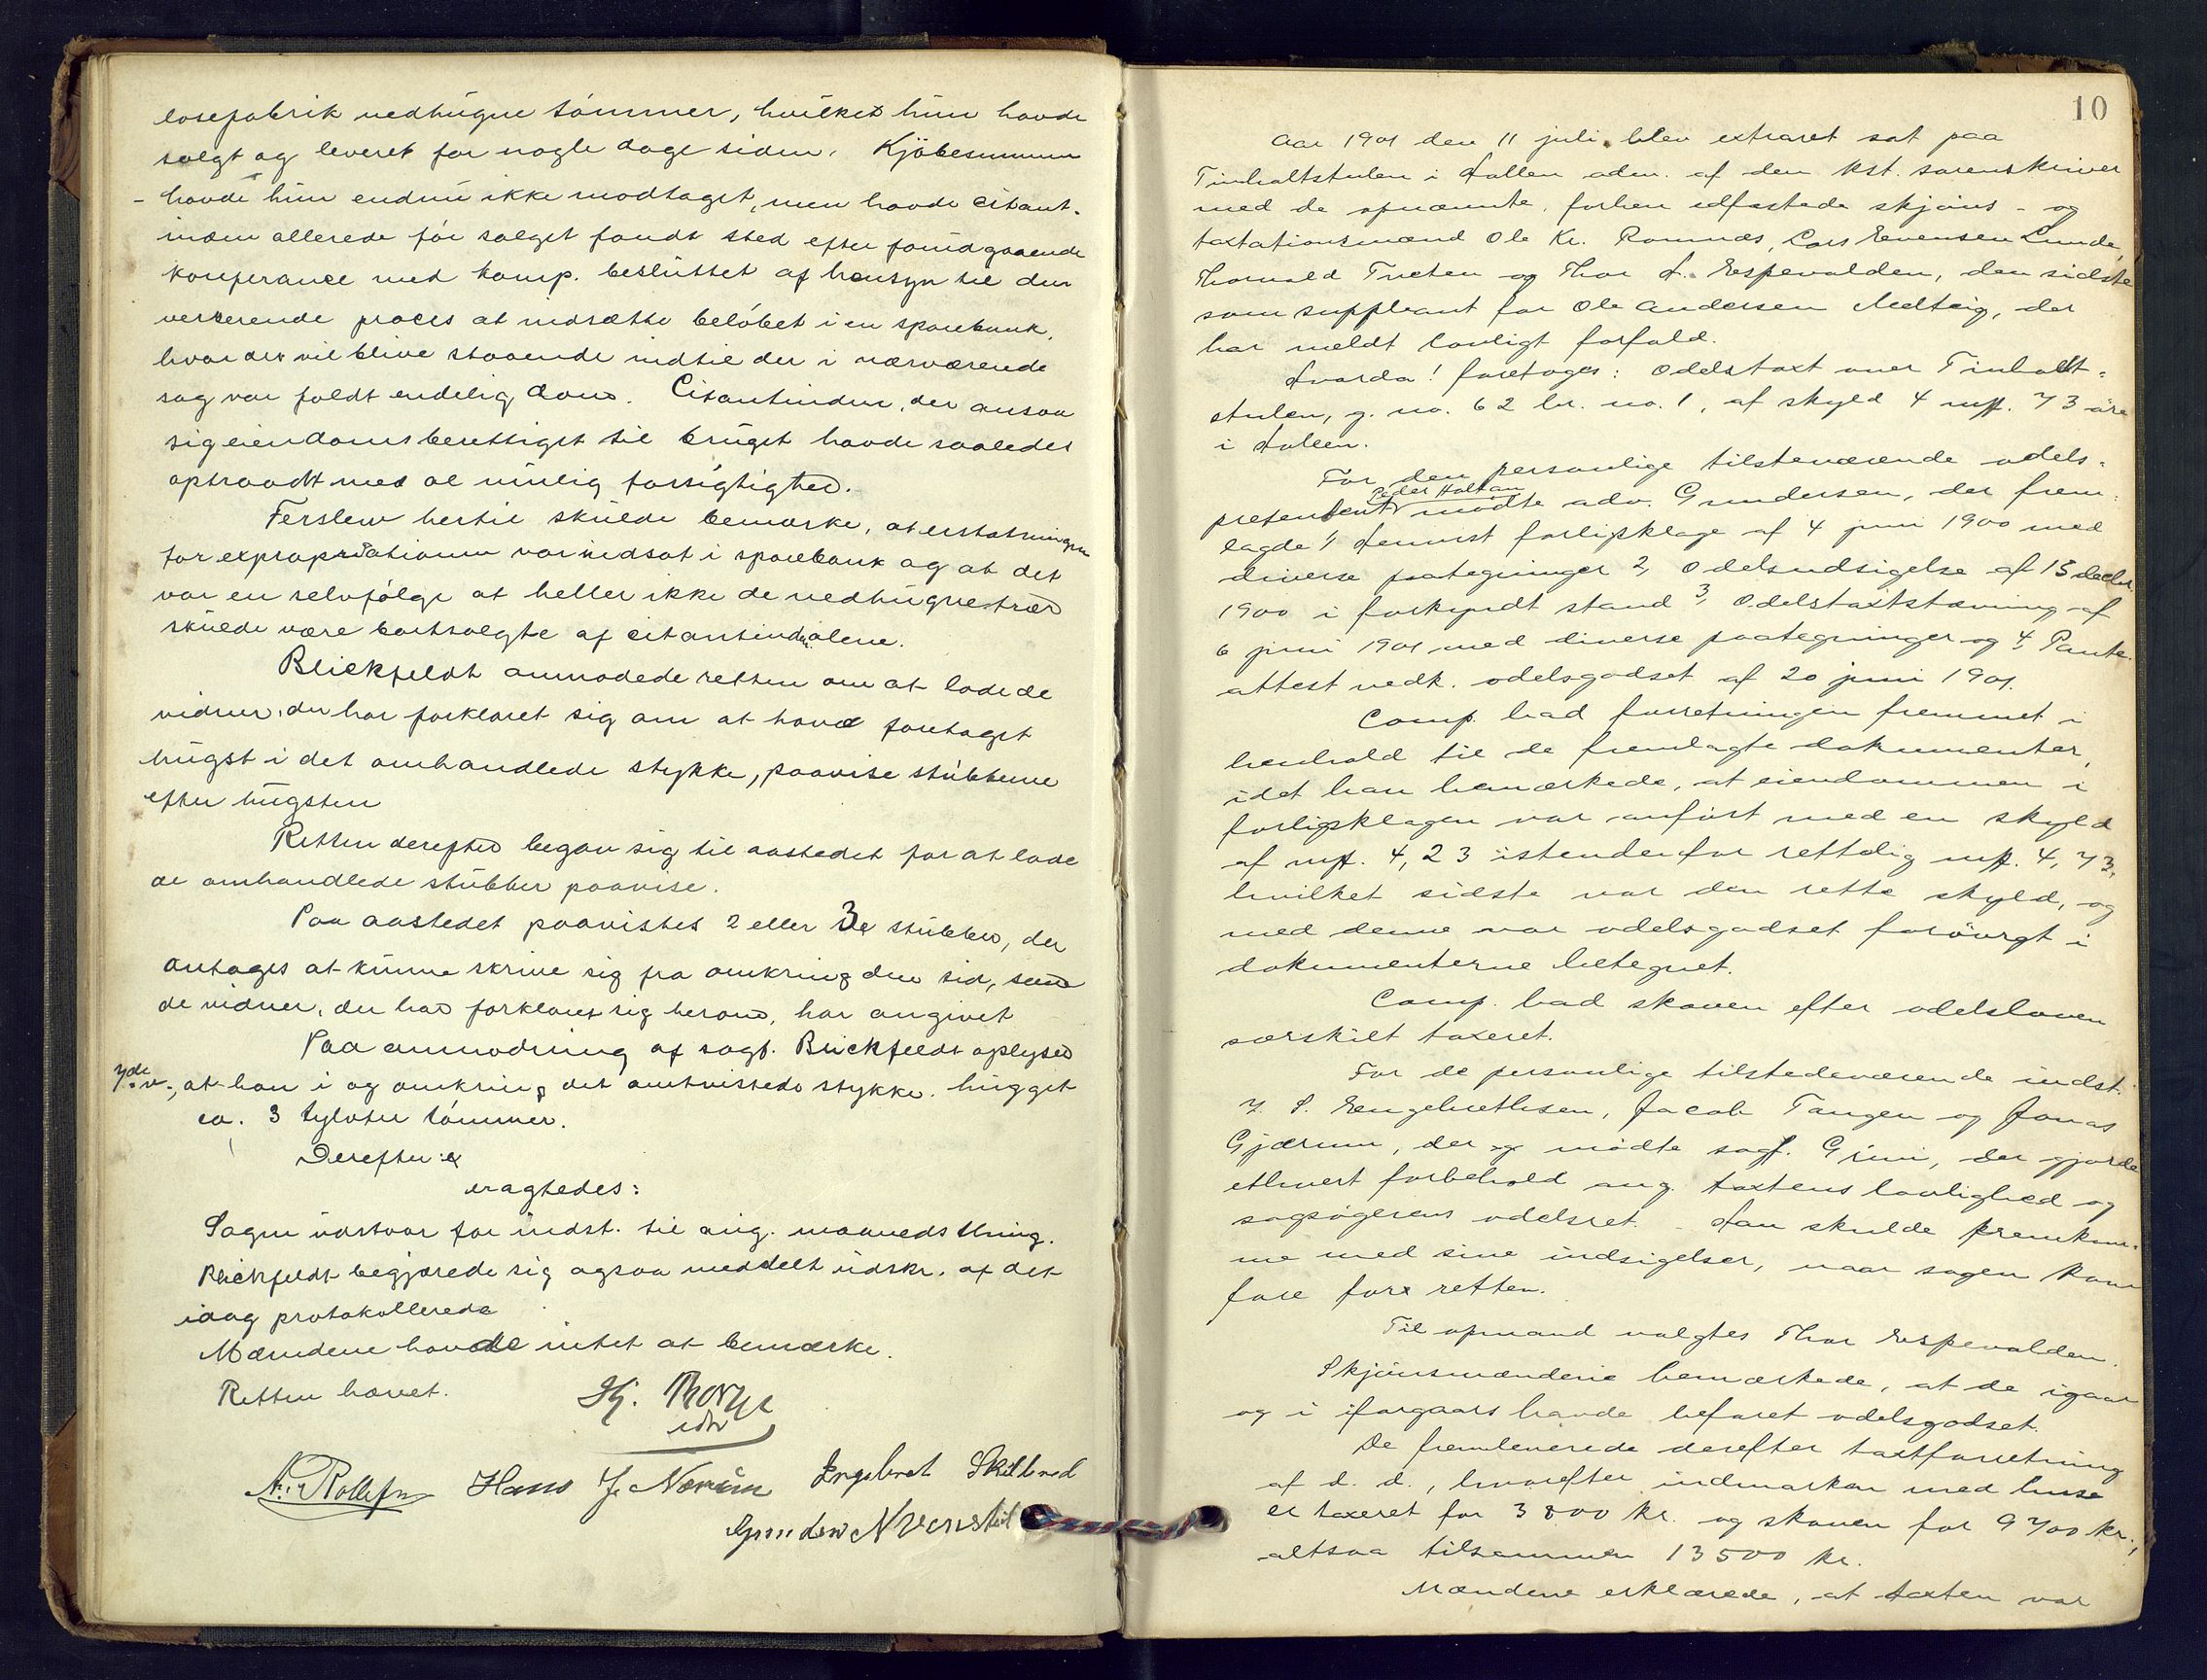 losefabrik nedhugne tømmer, hvilket hun havde
solgt og leveret for nogle dage siden. Kjøbesummen
havde hun endnu ikke modtaget, men havde citant-
inden allerede før salget fandt sted efter forudgaaende
konferance med komp. besluttet af hensyn til den
verserende proces at indsætte beløbet i en sparebank,
hvor det vil blive staaende indtil der i nærværende
sag var faldt endelig dom. Citantinden, der ansaa
sig eiendomsberettiget til bruget havde saaledes
optraadt med al mulig forsigtighed.
Ferslew hertil skulde bemærke, at erstatningen
for expropriationen var indsat i sparebank og at det
var en selvfølge at heller ikke de nedhugne trær
skulde være bortsolgte af citantinden alene.
Blickfeldt anmodede retten om at lade de
vidner, der har forklaret sig om at have foretaget
hugst i det omhandlede stykke, paavise stubberne
efter hugsten
Retten derefter begav sig til aastedet for at lade
de omhandlede stubber paavise.
Paa aastedet paavistes 2 eller 3 stubber, der
antages at kunne skrive sig fra omkring den tid, som
de vidner, der har forklaret sig herom, har angivet
Paa anmodning af sagf. Blickfeldt oplyste
7de v., at han i og omkring det omtvistede stykke hugget
ca. 3 tylvter tømmer.
Derefter
eragtedes:
Sagen udstaar for indst. til aug. maaneds thing.
Blickfeldt begjærede sig ogsaa meddelt udskr. af det
idag protokollerede
Mændene havde intet at bemærke.
Retten hævet.
Hj. Thorne
edv
N. Rollefsen Hans J. Nærum Engebret Skilbred
Gunder N Venstøl
10
Aar 1901 den 11 juli blev extraret sat paa
Tinholtstulen i Holleu adm. af den kst. sorenskriver
med de opnævnte, forhen edfæstede skjøns- og
taxtationsmænd Ole Kr. Romnæs, Lars Evensen Lunde,
Thorvald Treten og Thor H. Espevalden, den sidste
som suppleant for Ole Andersen Medteig, der
har meldt lovligt forfald.
Hvorda! foretoges: Odelstaxt over Tinholt-
stulen, g. no. 62 br. no. 1, af skyld 4 mk. 73 øre
i Hollen.
For den personlige tilstenærende odels-
pretendent Peder Holtan mødte adv. Gundersen, der frem-
lagde 1, Hermest forligsklage af 4 juni 1900 med
diverse paategninger 2, Odelsudsigelse af 15 decbr.
1900 i forkyndt stand 3, Odelstaxtstævning af
6 juni 1901 med diverse paategninger og 4, Pante-
attest vedk. odelsgodset af 20 juni 1901.
Comp. bad forretningen fremmet i
henhold til de fremlagte dokumenter,
idet han bemærkede, at eiendommen i
forligsklagen var anført med en skyld
af mk. 4,23 istendenfor rettelig mk. 4,73,
hvilket sidste var den rette skyld, og
med denne var odelsgodset forøvrgt i
dokumenterne betegnet.
Comp. bad skoven efter odelsloven
særskilt taxeret.
For de personlige tilstedeværende indst.
J. S. Engebrethsen, Jacob Tangen og Jonas
Gjærum, der og mødte sagf. Grini, der gjorde
ethvert forbehold ang. taxtens lovlighed og
sagsøgerens odelsret. Han skulde fremkom-
me med sine indsigelser, naar sagen kom
fore for retten.
Til opmand valgtes Thor Espevalden.
Skjønsmændene bemærkede, at de igaar
og i iforgaars havde befaret odelsgodset.
De fremleverede derefter taxtforretning
af d. d., hvorefter indmarken med huse
er taxeret for 3800 kr. og skoven for 9700 kr.,
altsaa tilsammen 13500 kr.
Mændene erklærede, at taxten var